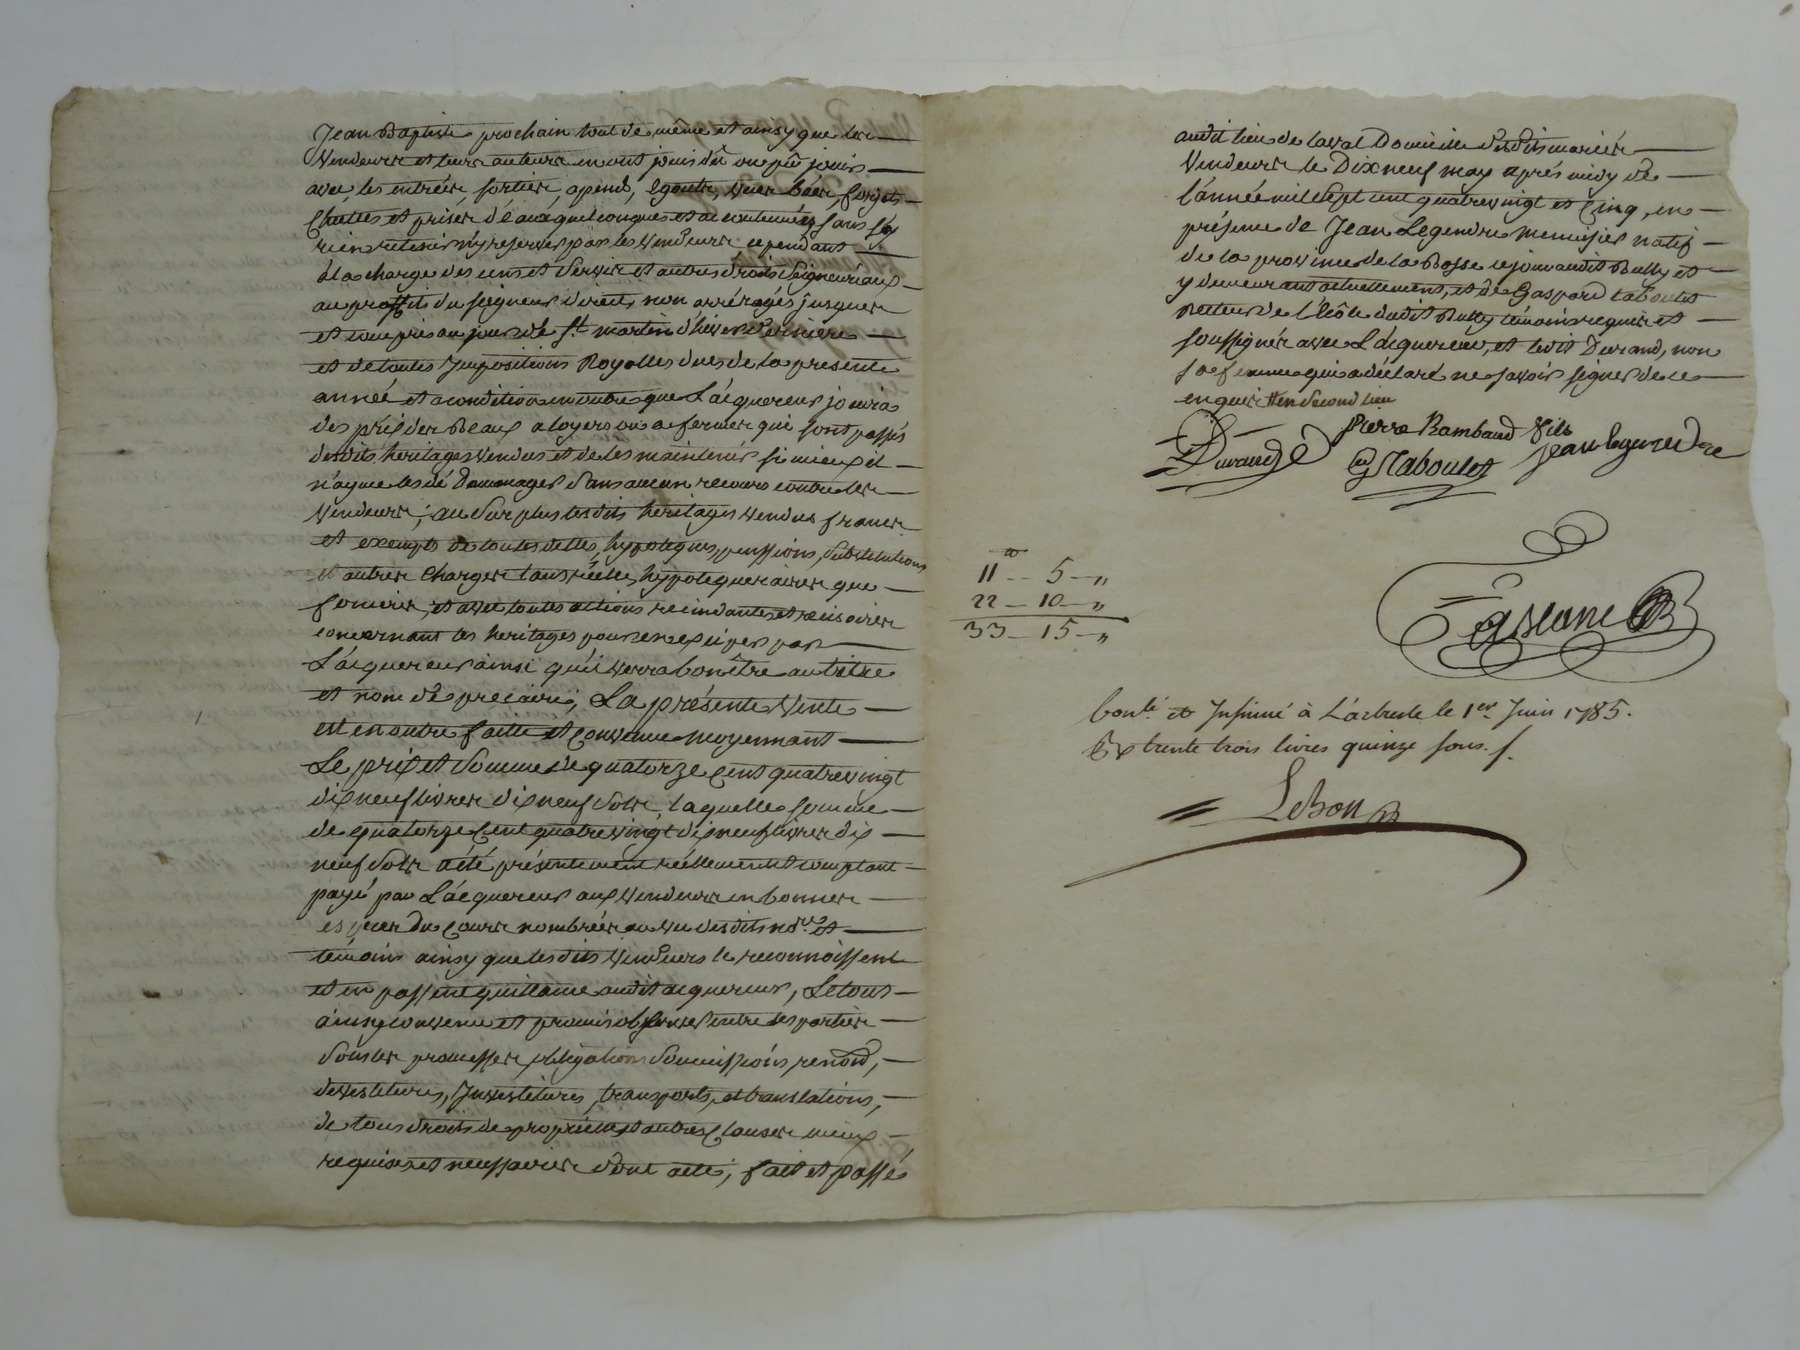 Jean Baptiste prochain tout de même et ainsy que les
Vendeurs et leurs auteurs en ont jouis dû ou pû jouir
avec les entrées, sorties, apend, Egouts, vues
Chuttes et prises d'eaux quelconques et accoutumées sans
rien retenir n'y reserver par les Vendeurs cependant
à la charge des cens et Servis et autres droits Seigneuriaux
au proffit du seigneur direct, non arréragés jusques
et compris au jour de St. martin d'hiver derniere
et de toutes Impositions Royalles dues de la presente
année et a condition en outre que L'acquereur jouira
des prix des Beaux a loyers ou a fermes qui sont passés
desdits heritages vendus et de les maintenir si mieux il
n'ayme les dédommager sans aucun recours contre les
Vendeurs; au Surplus lesdits heritages vendus francs
et exempts de toutes dettes, hypoteques, penssions, Substitutions
et autres Charges tant réelles, hypotequeraires que
foncieres, et avec toutes actions recindantes et recisoires
concernant les heritages pour en exiger par
L'acquereur ainsi qu'il verra bon être au titre
et nom de precaire; La présente Vente
est en outre faitte et Convenue moyennant
Le prix et Somme de quatorze Cent quatrevingt
dixneuf livres dixneuf Sols, laquelle somme
de quatorze Cent quatrevingt dixneuf livres dix
neuf Sols a été présentement réellement et comptant
payé par L'acquereur aux Vendeurs en bonnes
especes du Cours nombrées au vu desdits nres et
témoins ainsy que lesdits Vendeurs le reconnoissent
et en passent quittance audit acquereur, Le tout
ainsy convenu et promis observer entre les parties
Sous les promesses obligations Soumissions, renond,
devestitures, Investitures, transports, et translations,
de tous droits de proprieté et autres Clauses mieux
requises et necessaires dont acte, fait et passé
audit lieu de Laval Domicile desdits mariés
Vendeurs le Dixneuf may après midy de
l'année mil Sept cent quatrevingt et Cinq, en
présence de Jean Legendre Menuisier natif
de la province de la Basse sejour audit Bully et
y demeurant actuellement, et de Gaspard taboulet
Recteur de l'école dudit Bully témoins requis et
soussignés avec L'acquereur, et ledit Durand, non
sa femme qui a déclaré ne savoir signer de ce
enquis # en Second lieu
Durand Pierre Rambaud fils
G Taboulet Jean legendre
11 — 5 — "
22 — 10 — "
33 — 15 — "
Cont.é et Insinué à L'arbresle le 1er. Juin 1785.
trente trois livres quinze sous.
LeBon